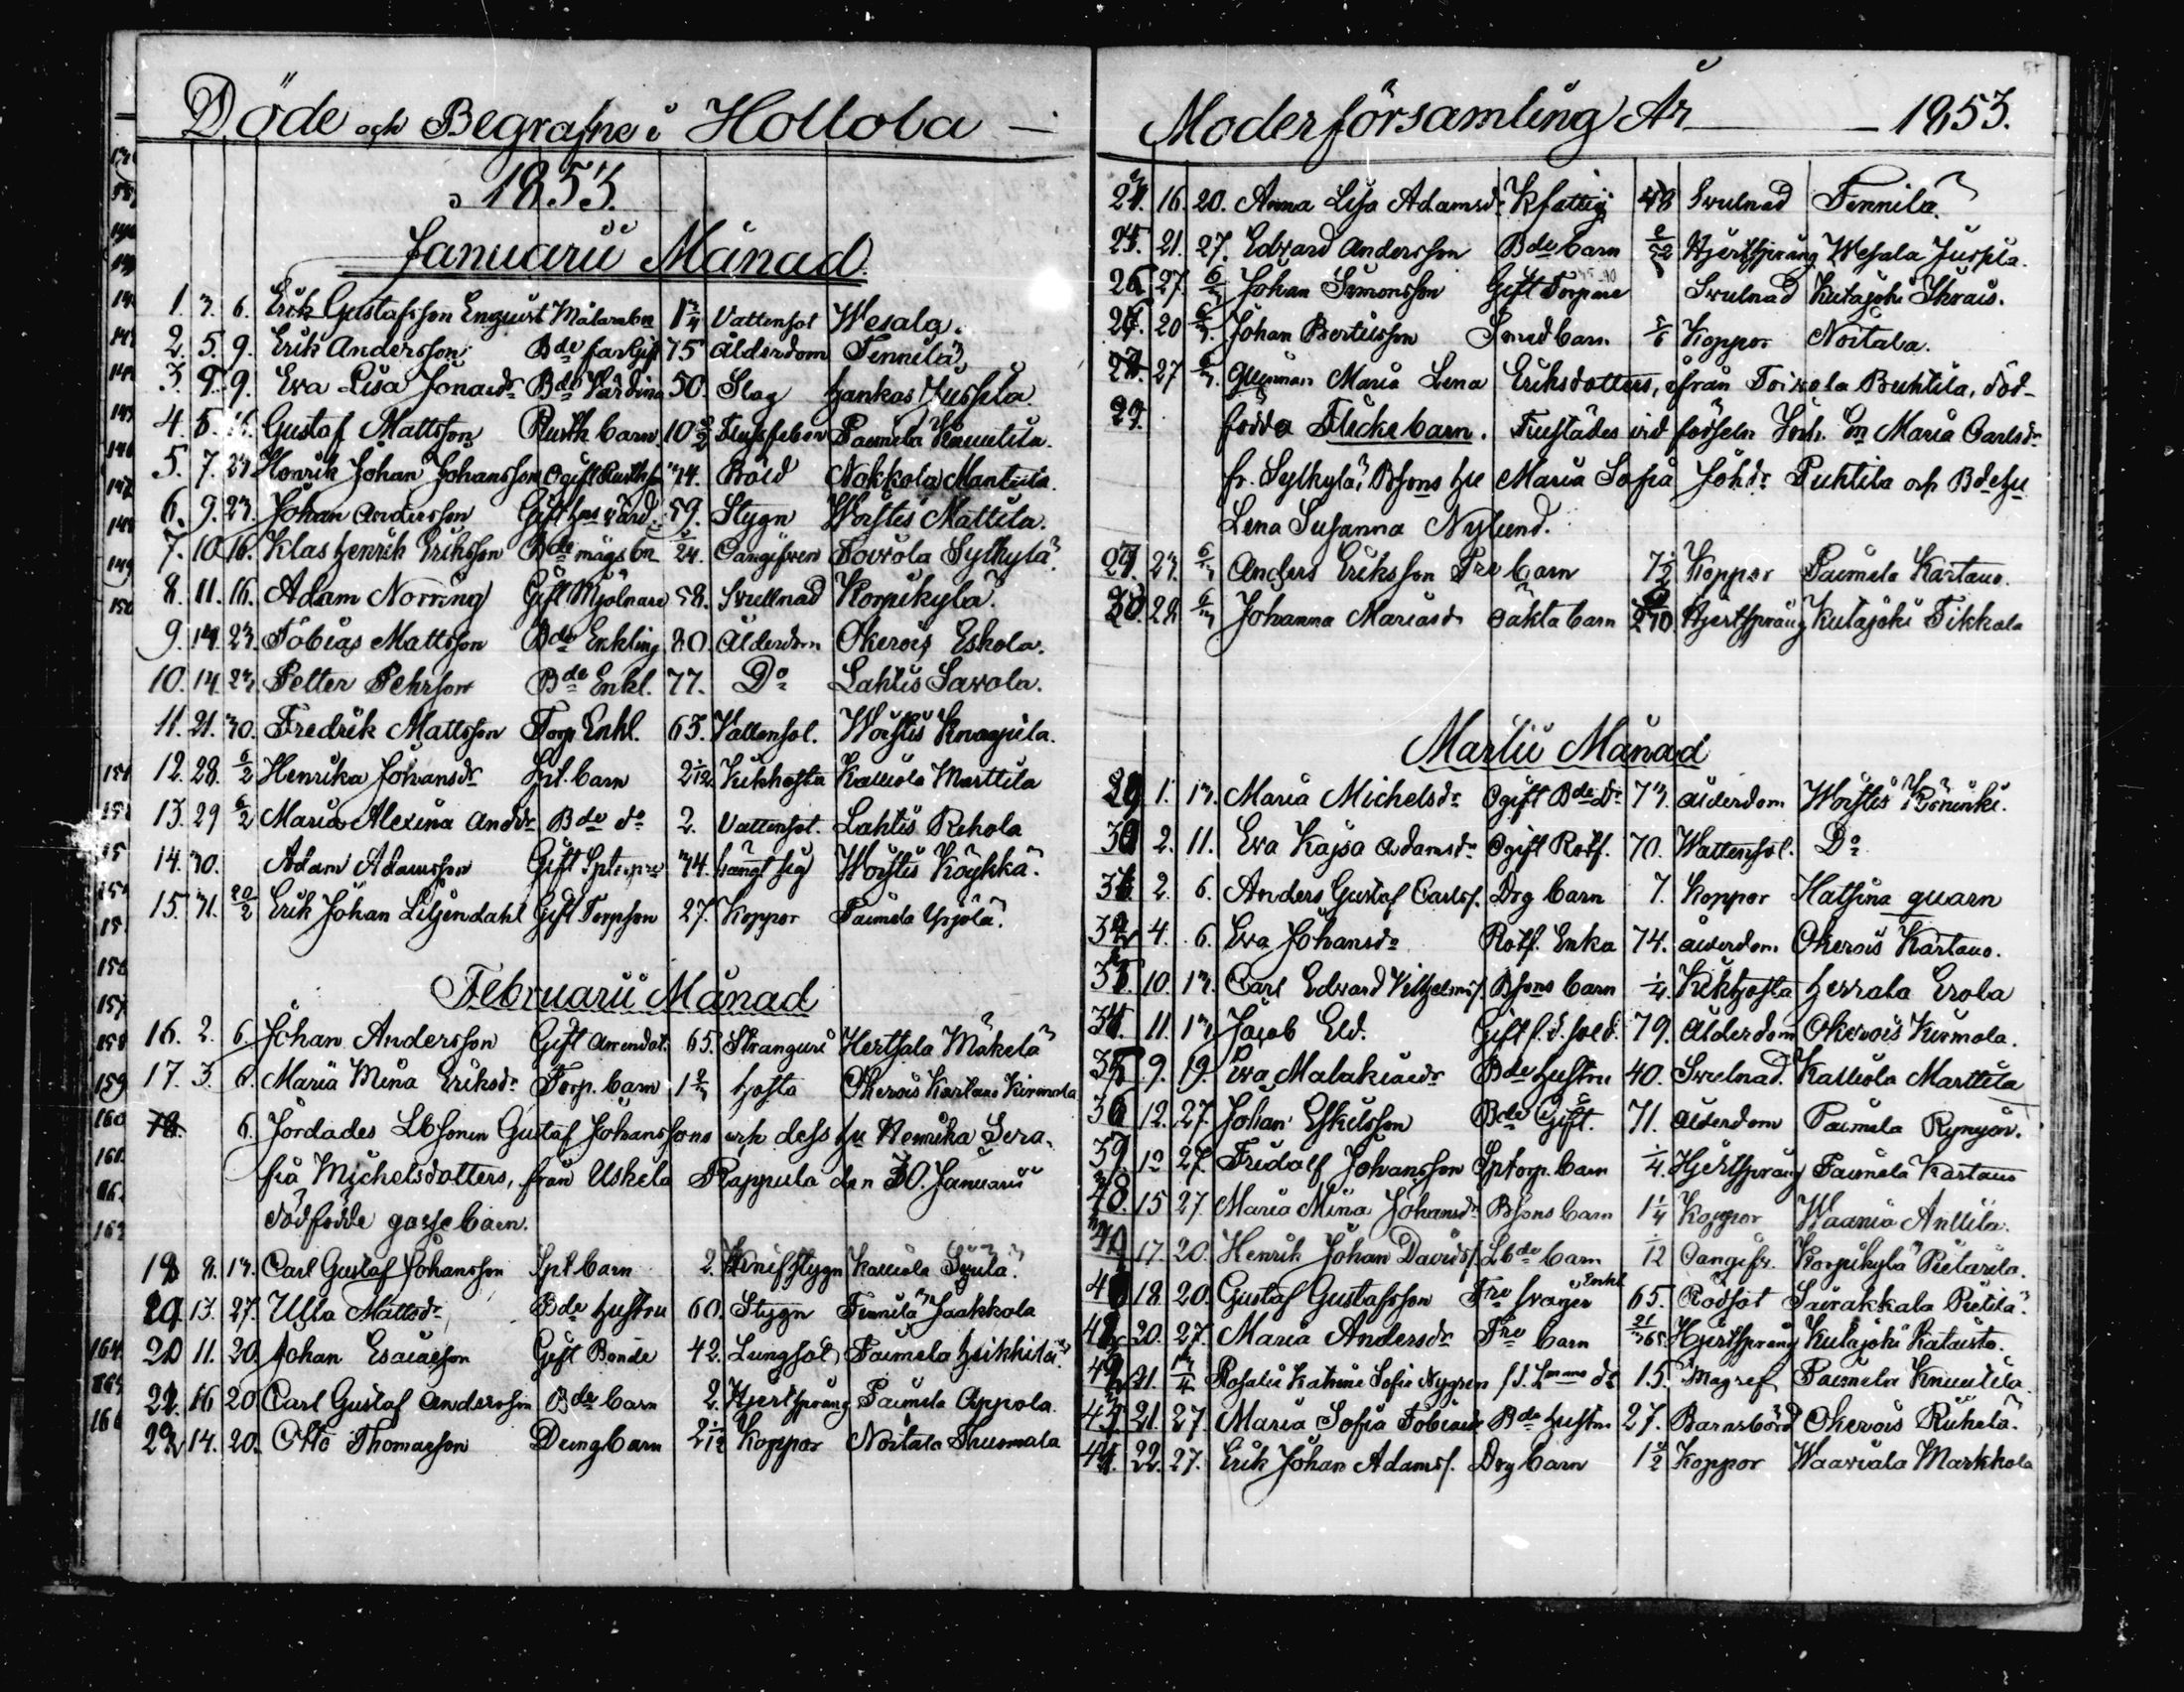 Döde och Begrafne i Hollola —
1853.
Januarii Månad
1. 3. 6. Erik Gustafsson Enqvist Målarebn 1 3/4 Vattensot Wesala.
2. 5. 9. Erik Andersson Bde far Gift 75 ålderdom Tennilä
3. 9. 9. Ewa Lisa Jonasdr Bde Värdina 50. Slag Hankas Jussila
4. 5. 16. Gustaf Mattsson Rusth barn 10 Paimela Knuutila.
5. 7. 23. Henrik Johan Johansson Ogift Rusth 34. Bråd Nokkola Manttila
6. 9. 23. Johan Andersson Gift 59. Stygn Woistis Mattila.
7. 10. 16. Klas Henrik Eriksson Bde mågs bn 1/24. Oangifwen Toivola Sylkylä
8. 11. 16. Adam Norring Gift Mjölnare 58. Svullnad Korpikylä.
9. 14. 23. Tobias Mattsson Bde Enkling 80. Ålderdom Okerois Eskola.
10. 14. 23. Petter Pehrson Bde Enkl. 77. Do Lahtis Sawola.
11. 21. 30. Fredrik Mattsson Torp Enkl. 63. Vattensot. Woistis Knaapila.
12. 28. 6/2 Henrika Johansdr Spt. barn 2 1/12. Kikhosta Kalliola Marttila
13. 29 6/2 Maria Alexina Anddr Bde do 2. Vattensot. Lahtis Rekola
14. 30. Adam Adamsson Gift 34. hängt sig Woistis Köykkä.
15. 31. 20/2 Erik Johan Liljendahl Gift Torpson 27. Koppor Paimela Yrjölä.
Februarii Månad
16. 2. 6. Johan Andersson Gift Arrendat. 65. Stranguri Hertsala Mäkelä
17. 3. 6. Maria Mina Eriksdr Torp. barn 1 Hosta Okerois Kartano Kirmola
18. 6. Jordades Lbsonen Gustaf Johanssons och dess hu Henrika Sera-
fia Michelsdotters, från Uskela Rappula den 30. Januarii
dödfödde gossebarn.
18 8. 13. Carl Gustaf Johansson Spt barn 2. Knifstygn Kalliola
19. 13. 27. Ulla Mattsdr Bde hustru 60. Stygn Tennilä Jaakkola
20 11. 20. Johan Esaiasson Gift Bonde 42. Lungsot Paimela Heikkilä.
21. 16 20. Carl Gustaf Andersson Bde barn 2. Hjertsprång Paimela Eppola
22 14. 20. Otto Thomasson Drengbarn 2 1/12 Koppor Noitala Tuomala
Moderförsamling År — 1853.
16. 20. Anna Lisa Adamsdr Kfattig 48 Svulnad Tennilä.
25. 21. 27. Edvard Andersson Bde barn Hjertsprång Wesala Jussila.
26. 27. 6/3 Johan Simonsson Gift Torpare Svulnad Kutajoki Skrais.
20 6/3. Johan Bertilsson Smed barn Koppor Noitala.
27 6/3. Maria Lena Eriksdotters, från Toivola Buhtila, död-
födda Flickebarn. Tustades vid födseln Inh. En Maria Carlsdr
fr. Sylkylä, Bsons hu Maria Sofia Johdr Puhtila och Bde hu
Lena Susanna Nylund.
29. 23. 6/3 Anders Eriksson Fre barn 7 1/2 Koppor Paimela Kartano.
28. 6/3 Johanna Mariasdr oäkta barn Hjertsprång Kutajoki Tikkala
Martii Månad
29 1. 13. Maria Michelsdr Ogift Bde Dr 73. ålderdom Woistis Böninki.
30 2. 11. Ewa Kajsa Adamsdr Ogift Rotf. 70. Wattensot. Do
31. 2. 6. Anders Gustaf Carlss. Drg barn 7. Koppor Hatsina quarn
32 4. 6. Ewa Johansdr Rotf. Enka 74. ålderdom. Okerois Kartano.
33. 10. 13. Carl Edvard Vilhelmss. Bsons barn 1/4. Kikhosta Herrala Erola
34. 11. 13. Jacob Eld. Gift f. d. sold. 79. Ålderdom Okerois Kirmola.
35 9. 19. Ewa Malakiasdr Bde hustru 40. Svulnad. Kalliola Marttila
36 12. 27. Johan Eskilsson Bde Gift. 71. ålderdom Paimela Rynyön.
27. Fridolf Johansson Sptorp. barn 1/4. Hjertsprång Paimela Kartano
15 27. Maria Mina Johansdr Bsons barn 1 1/4 Koppor Waania Anttila.
17. 20. Henrik Johan Davids s. Lbde barn 1/12 Oangifv. Korpikylä Pietarila.
18. 20. Gustaf Gustafsson Fre svåger Enkl 65. Rödsot Sairakkala Pietilä.
20. 27. Maria Andersdr Fre barn 21/365. Hjertsprång Kutajoki Kataisto.
21. Rosalie Katrine Sofie Nygren 15. Magref Paimela Knuutila.
43. 21. 27. Maria Sofia Tobiasdr Bde hustru 27. Barnsbörd Okerois Rihelä.
44. 22. 27. Erik Johan Adamss. Drg barn 1 1/2 Koppor Waaviala Markkola